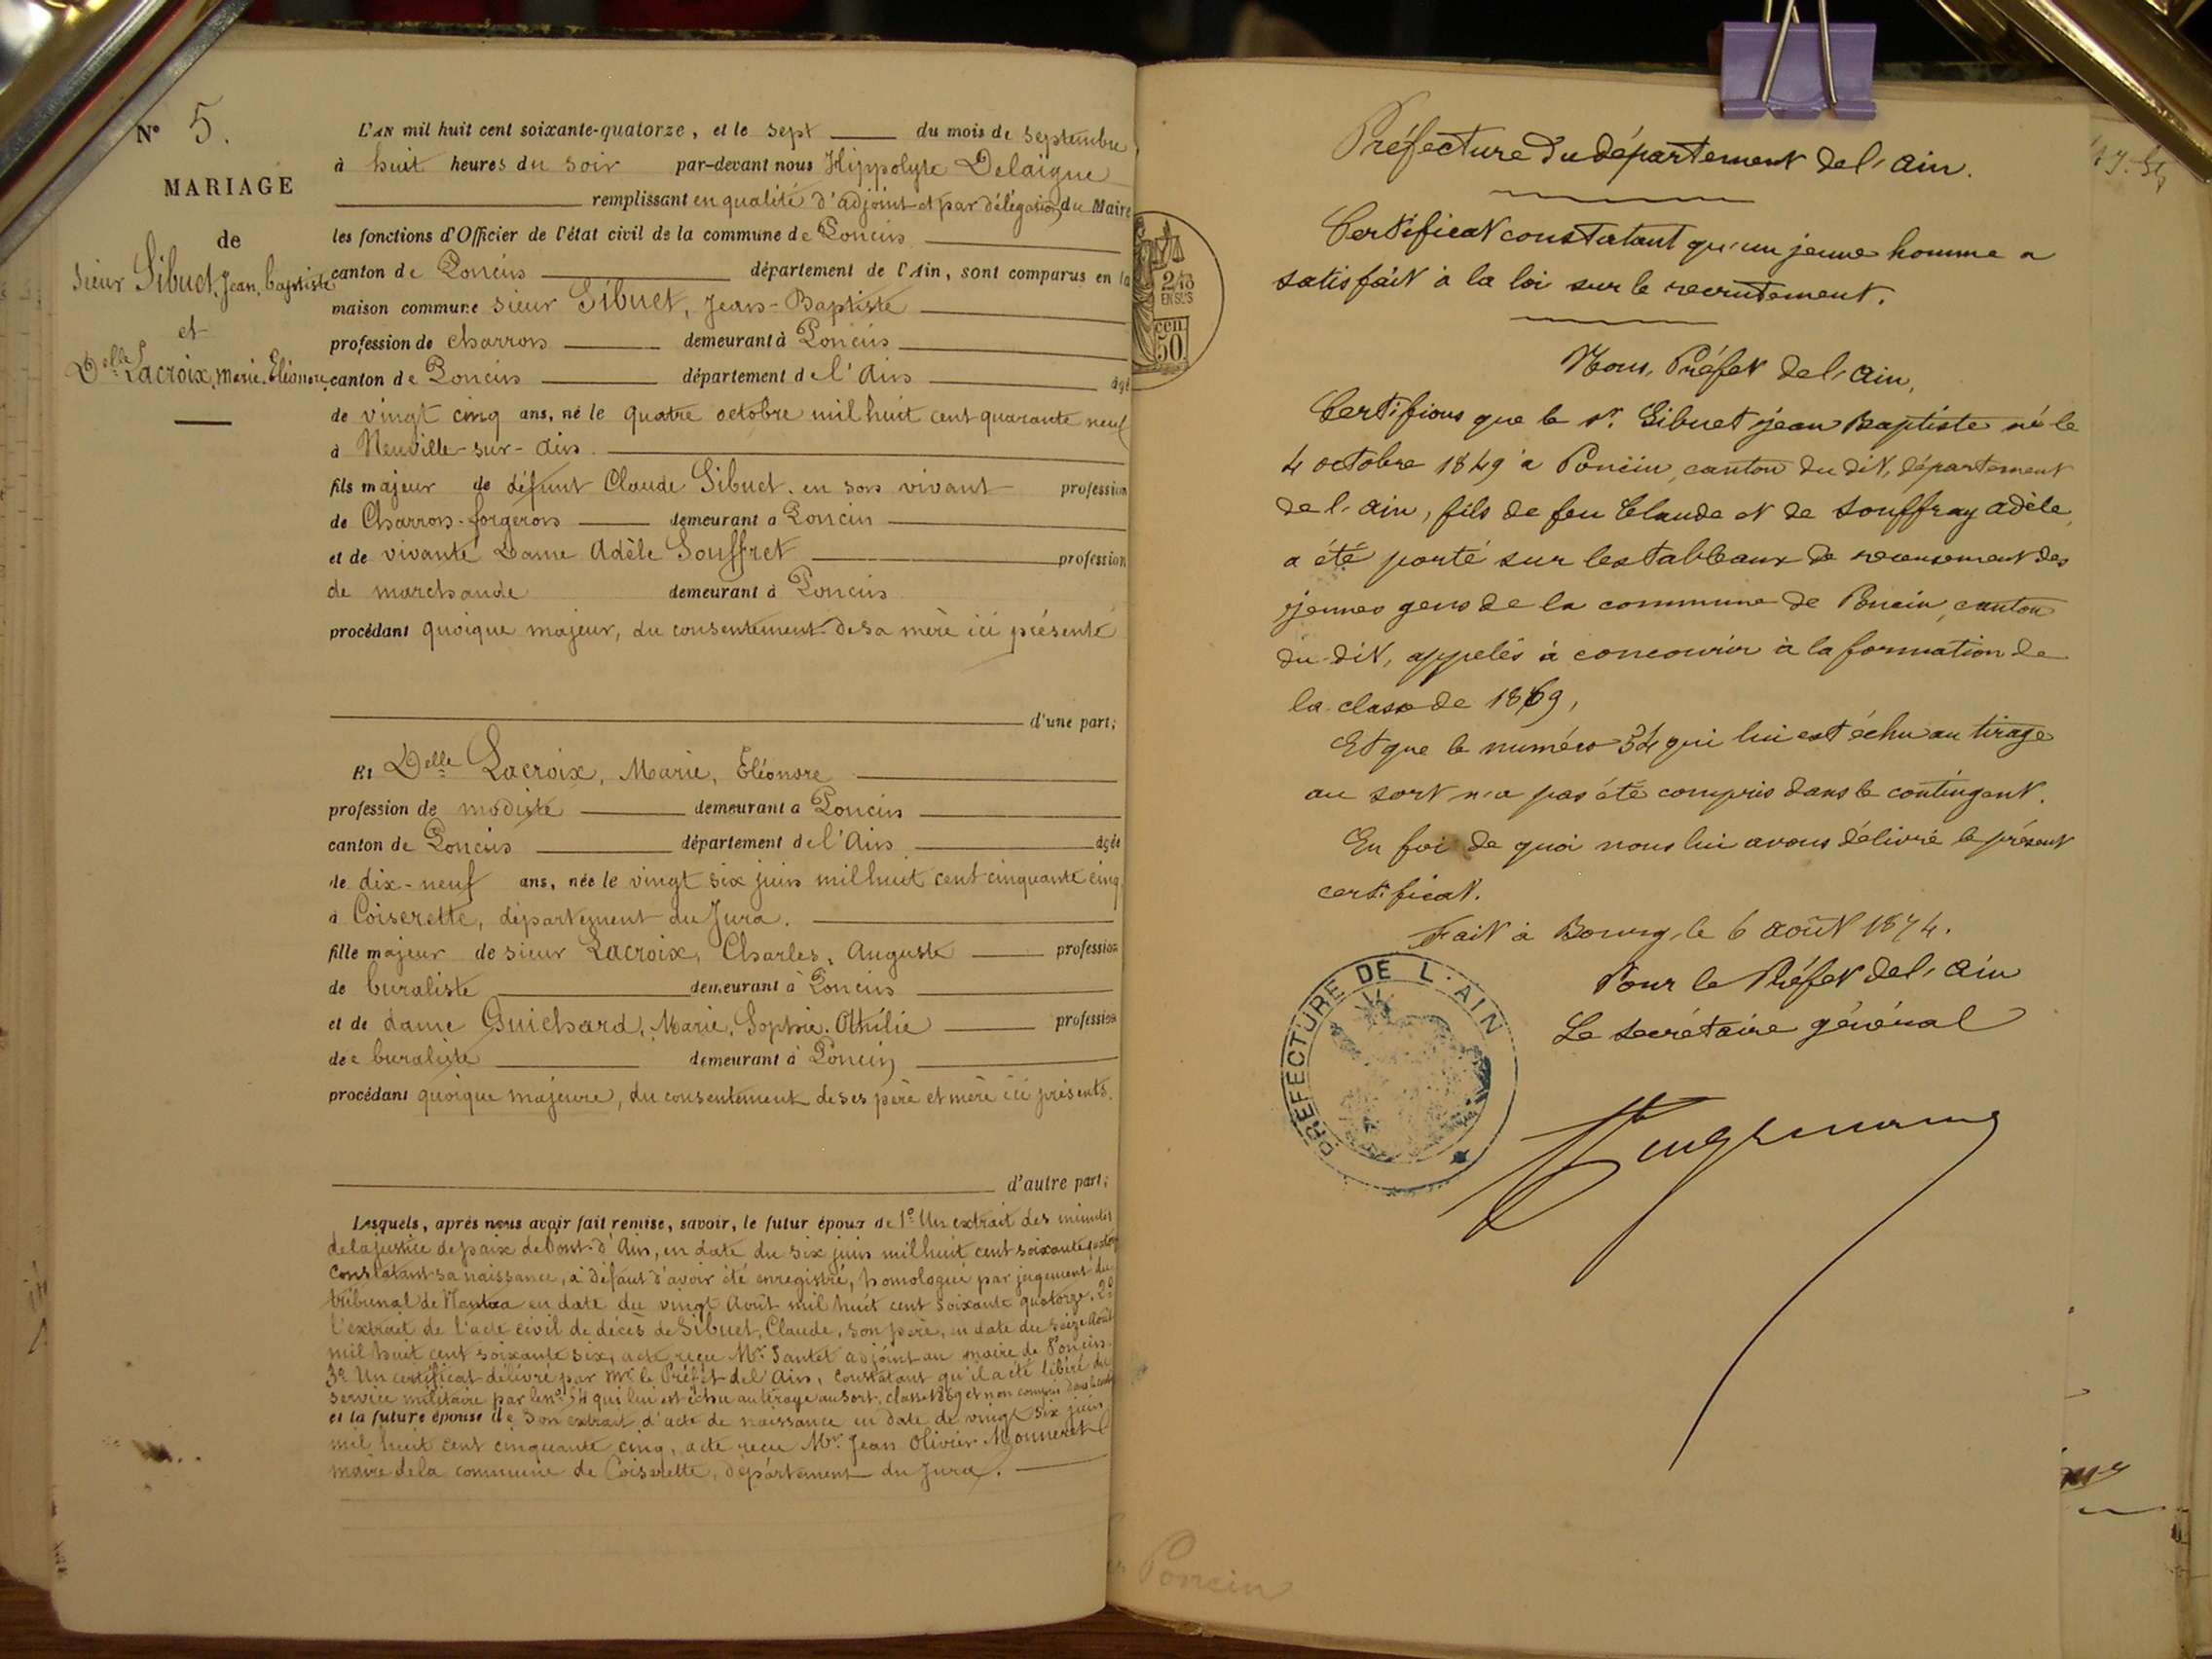 N° 5.
MARIAGE
de
sieur Sibuet, Jean, baptiste
et
Delle Lacroix, Marie, Eléonore,
L'AN mil huit cent soixante-quatorze, et le sept du mois de septembre
à huit heures du soir par-devant nous Hippolyte Delaigue
remplissant en qualité d'adjoint et par délégation du Maire
les fonctions d'Officier de l'état civil de la commune de Poncin
canton de Poncin département de l'Ain, sont comparus en la
maison commune sieur Sibuet, Jean-Baptiste
profession de charron demeurant à Poncin
canton de Poncin département de l'Ain âgé
de vingt cinq ans, né le quatre octobre mil huit cent quarante neuf
à Neuville-sur-Ain
fils majeur de défunt Claude Sibuet, en son vivant profession
de Charron-forgeron demeurant à Poncin
et de vivante Dame Adèle Souffret profession
de marchande demeurant à Poncin
procédant quoique majeur, du consentement de sa mère ici présente
d'une part;
Et Delle Lacroix, Marie, Eléonore
profession de modiste demeurant à Poncin
canton de Poncin département de l'Ain âgée
de dix-neuf ans, née le vingt six juin mil huit cent cinquante cinq
à Coiserette, département du Jura.
fille majeur de sieur Lacroix, Charles, Auguste profession
de buraliste demeurant à Poncin
et de dame Guichard, Marie, Sophie, Othilie profession
de buraliste demeurant à Poncin
procédant quoique majeure, du consentement de ses père et mère ici présents.
d'autre part;
Lesquels, après nous avoir fait remise, savoir, le futur époux de 1° Un extrait des minutes
de la justice de paix de Pont-d'Ain, en date du six juin mil huit cent soixante quatorze
constatant sa naissance, à défaut d'avoir été enregistré, homologué par jugement du
tribunal de Nantua en date du vingt Août mil huit cent soixante quatorze. 2°
l'extrait de l'acte civil de décès de Sibuet, Claude, son père, en date du seize Août
mil huit cent soixante six, acte reçu Mr. Santet adjoint au maire de Poncin.
3° Un certificat délivré par Mr le Préfet de l'Ain, constatant qu'il a été libéré du
service militaire par le n° 54 qui lui est échu au tirage au sort, classe 1869 et non compris dans le
et la future épouse de son extrait d'acte de naissance en date de vingt six juin
mil huit cent cinquante cinq, acte reçu Mr. Jean Olivier Monneret
maire de la commune de Coiserette, département du Jura.
2/10
EN SUS
cen.
50
Préfecture du département de l'Ain.
Certificat constatant qu'un jeune homme a
satisfait à la loi sur le recrutement.
Nous, Préfet de l'Ain,
Certifions que le sr. Sibuet jean Baptiste né le
4 octobre 1849 à Poncin, canton du dit, département
de l'Ain, fils de feu Claude et de Souffray adèle,
a été porté sur les tableaux de recensement des
jeunes gens de la commune de Poncin, canton
du-dit, appelés à concourir à la formation de
la classe de 1869,
Et que le numéro 54 qui lui est échu au tirage
au sort n'a pas été compris dans le contingent.
En foi de quoi nous lui avons délivré le présent
certificat.
Fait à Bourg, le 6 août 1874.
Pour le Préfet de l'Ain
Le secrétaire général
PREFECTURE DE L'AIN
Poncin